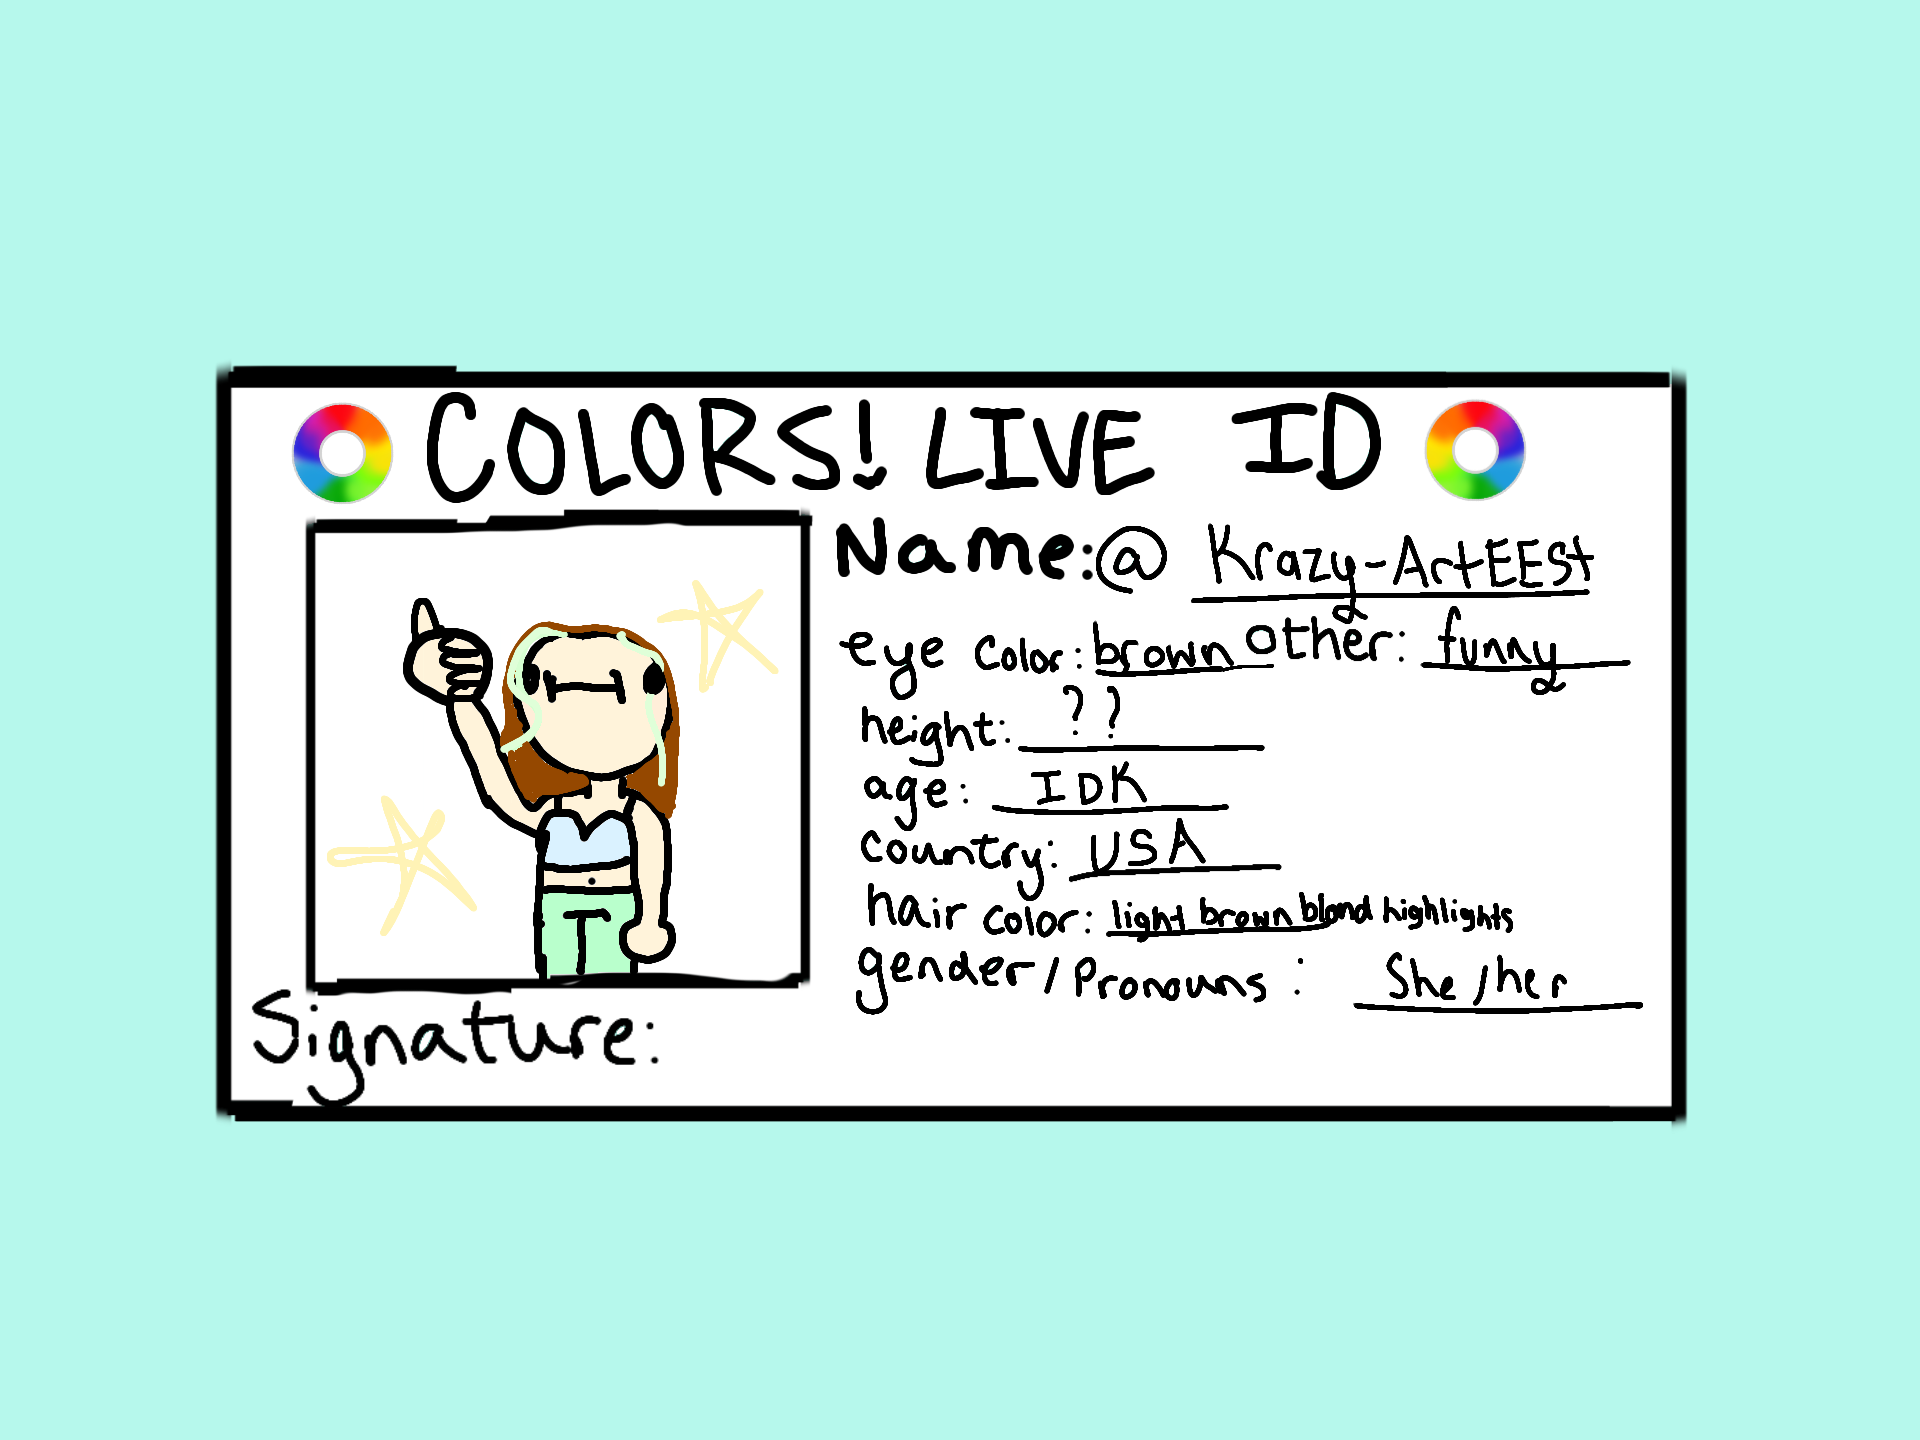 COLORS! LIVE ID
Name:@ Krazy-ArtEESt
eye color: brown Other: funny
height: ??
age: IDK
country: USA
hair color: light brown blond highlights
gender/Pronouns : She/her
Signature: